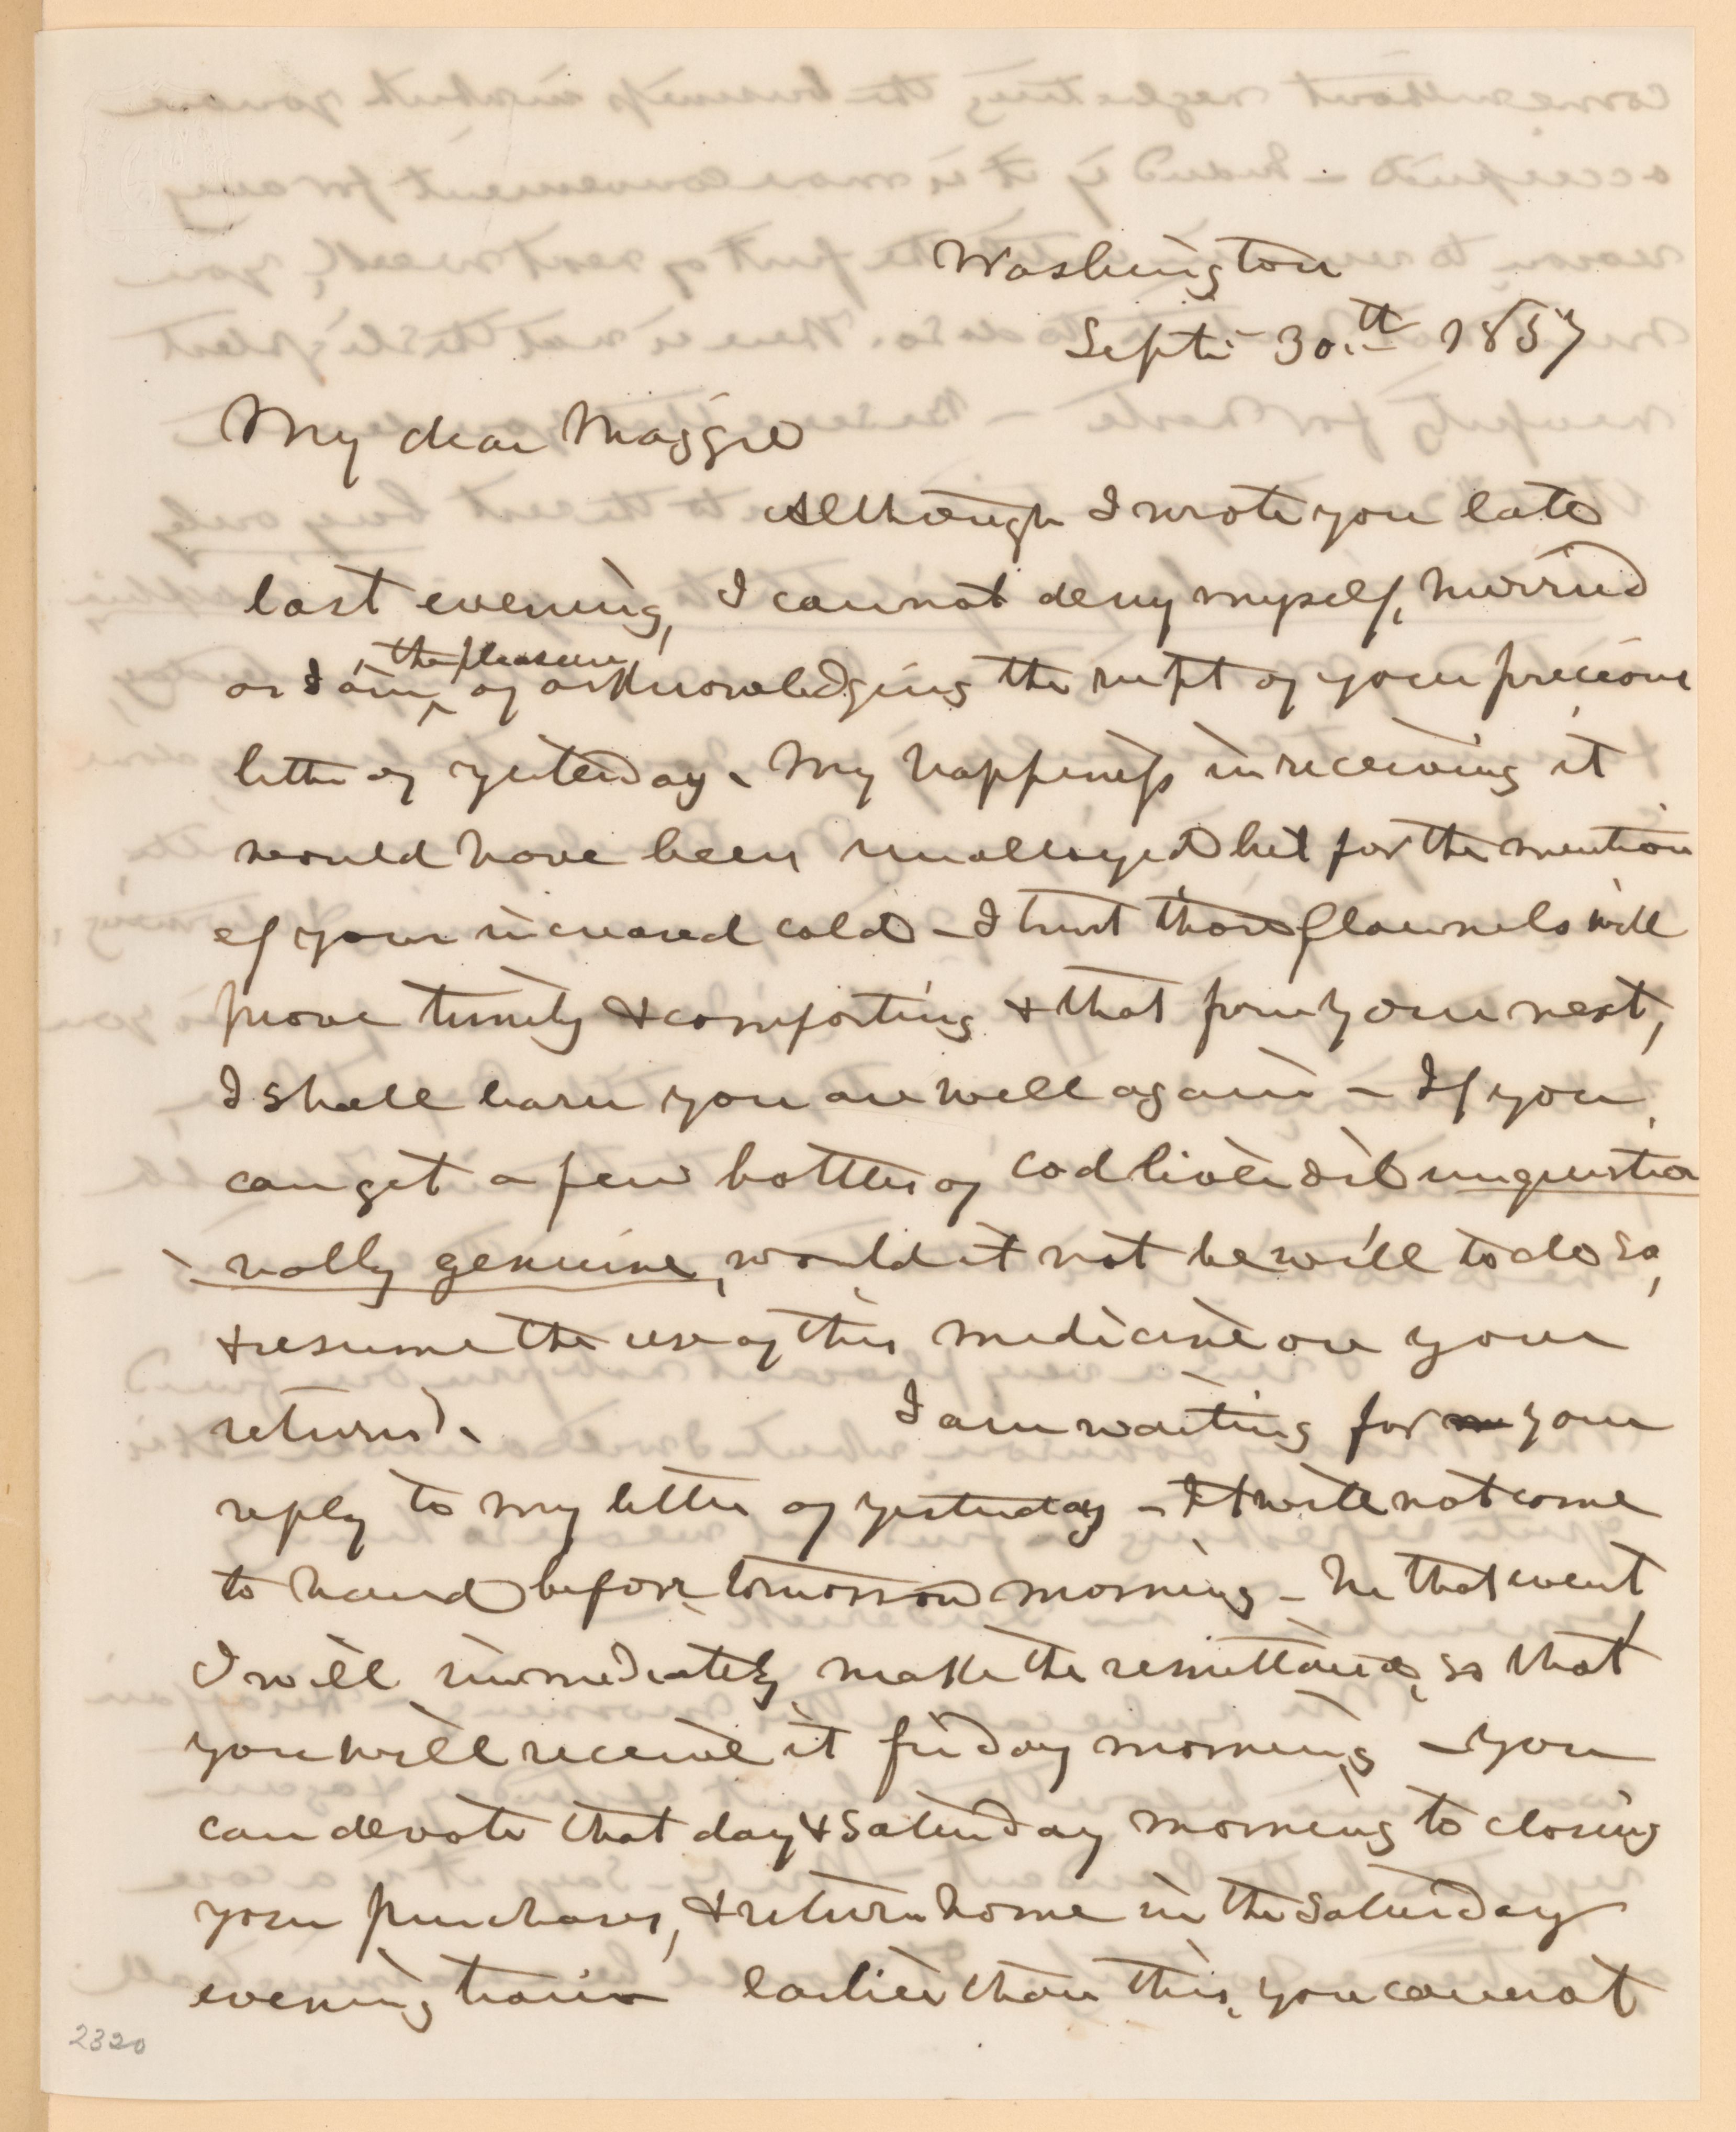 Washington
Septr 30.th 1857
My dear Maggie
Although I wrote you late
last evening, I cannot deny myself, hurried
as I am, the pleasure of acknowledging the receipt of your precious
letter of yesterday. My happiness in receiving it
would have been unalloyed but for the mention
of your increased cold – I trust those flannels will
prove timely & comforting & that from your next,
I shall learn you are well again – If you
can get a few bottles of cod liver oil unquestio
nally genuine, would it not be well to do so,
& resume the use of this medicine on your
return. I am waiting for your
reply to my letter of yesterday – It will not come
to hand before tomorrow morning – In that event,
I will immediately make the remittance, so that
you will receive it friday morning – you
can devote that day & Saturday morning to closing
your purchases, & return home in the Saturday
evening train Earlier than this, you cannot
2320